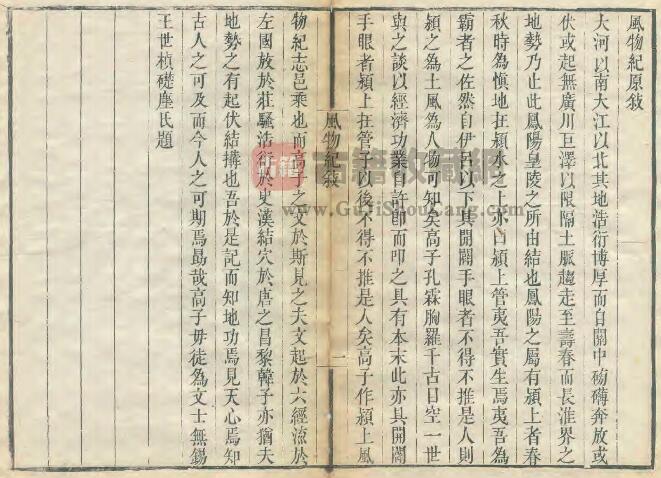 風物紀原敍
大河以南大江以北其地浩衍博厚而自關中磅礴奔放或
伏或起無廣川巨澤以限隔土脈趨走至壽春而長淮界之
地勢乃止此鳳陽皇陵之所由結也鳳陽之屬有潁上者春
秋時為慎地在潁水之上亦曰潁上管夷吾實生焉夷吾為
霸者之佐然自伊呂以下其開闢手眼者不得不推是人則
潁之為土風為人物可知矣高子孔霖胸羅千古目空一世
與之談以經濟功業自許即而叩之具有本末此亦具開闢
手眼者潁上在管子以後不得不推是人矣高子作潁上風
風物紀敍
一
物紀志邑乘也而高子之文於斯見之夫文起於六經流於
左國放於莊騷浩衍於史漢結穴於唐之昌黎韓子亦猶夫
地勢之有起伏結搆也吾於是記而知地功焉見天心焉知
古人之可及而今人之可期焉勗哉高子毋徒為文士無錫
王世楨礎塵氏題
古籍
古籍收藏網
www.GuJiShouCang.com